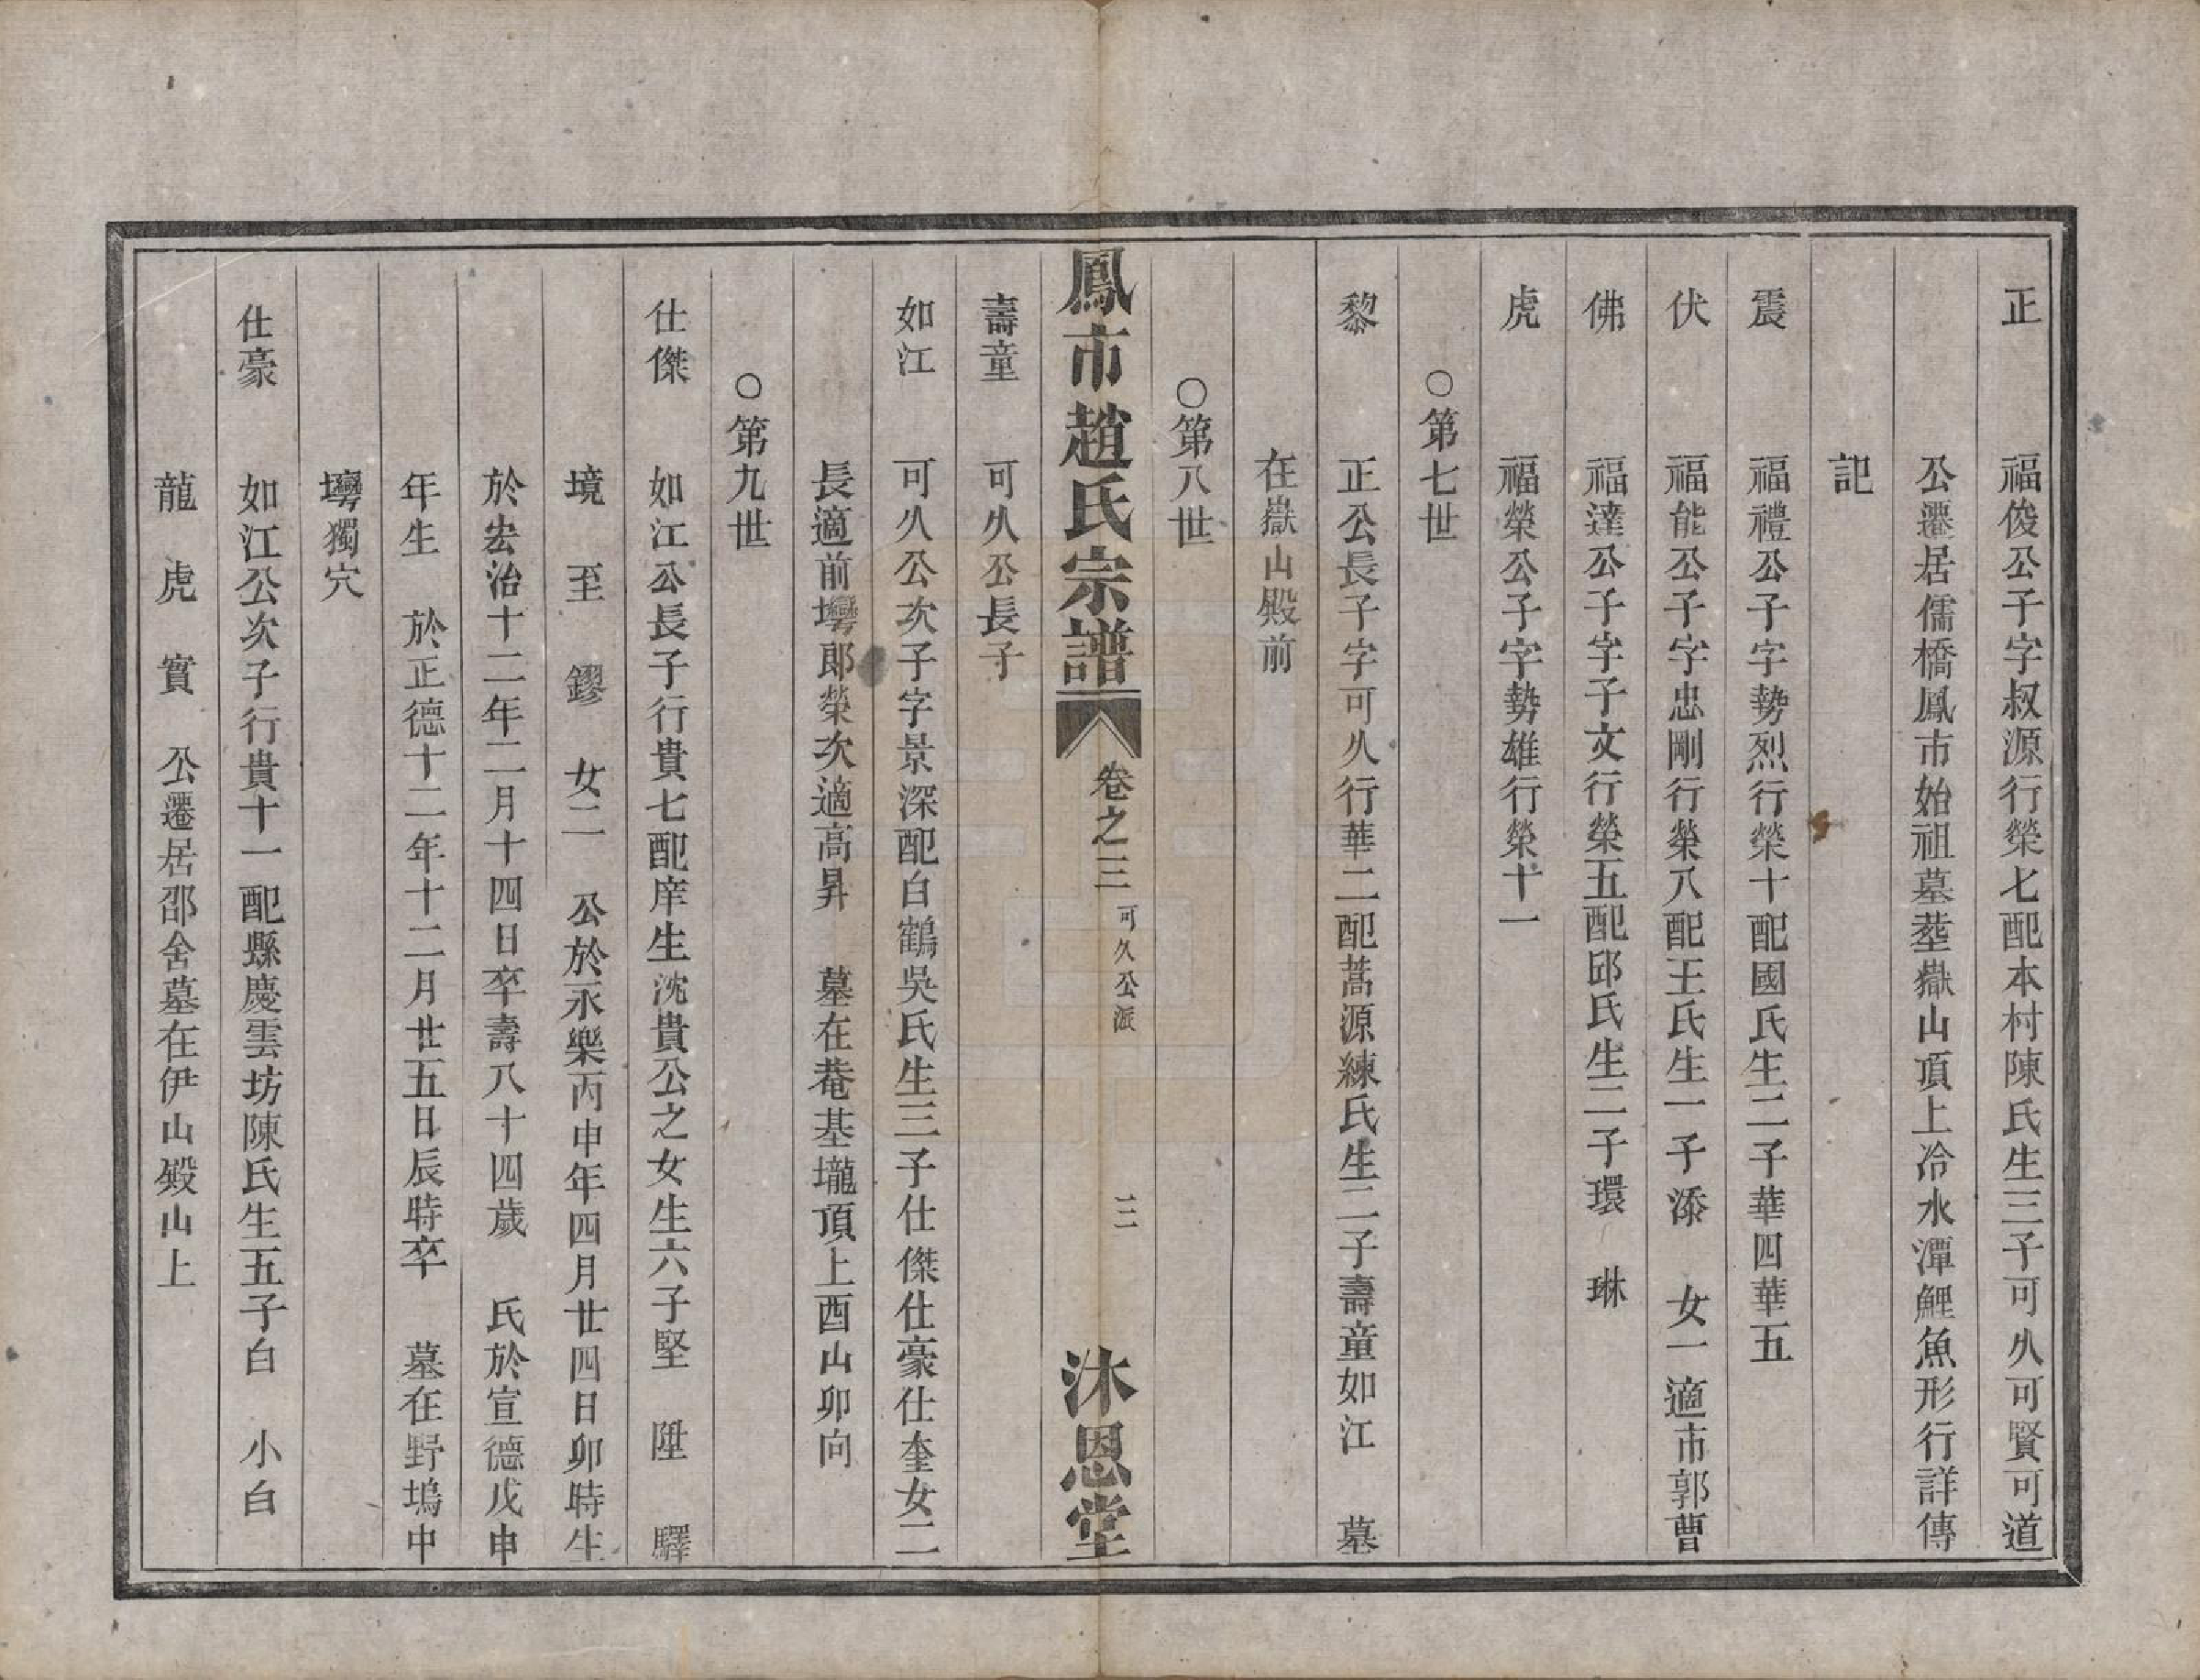 正　福俊公子字叔源行榮七配本村陳氏生三子可久可賢可道
公遷居儒橋鳳市始祖墓塟嶽山頂上冷水潭鯉魚形行詳傳
記
震　福禮公子字勢烈行榮十配國氏生二子華四華五
伏　福能公子字忠剛行榮八配王氏生一子添　女一適市郭曹
佛　福達公子字子文行榮五配邱氏生二子環　琳
虎　福榮公子字勢雄行榮十一
○第七世
黎　正公長子字可久行華二配蒿源練氏生二子壽童如江　墓
在嶽山殿前
○第八世
鳳市趙氏宗譜　卷之三　可久公派　二　沐恩堂
壽童　可久公長子
如江　可久公次子字景深配白鶴吳氏生三子仕傑仕豪仕奎女二
長適前壪郎榮次適高昇　墓在菴基壠頂上酉山卯向
○第九世
仕傑　如江公長子行貴七配庠生沈貴公之女生六子堅　陞　驛
境　至　鏐　女二　公於永樂丙申年四月廿四日卯時生
於宏治十二年二月十四日卒壽八十四歲　氏於宣德戊申
年生　於正德十二年十二月廿五日辰時卒　墓在野塢中
壪獨穴
仕豪　如江公次子行貴十一配縣慶雲坊陳氏生五子白　小白
龍　虎　實　公遷居邵舍墓在伊山殿山上